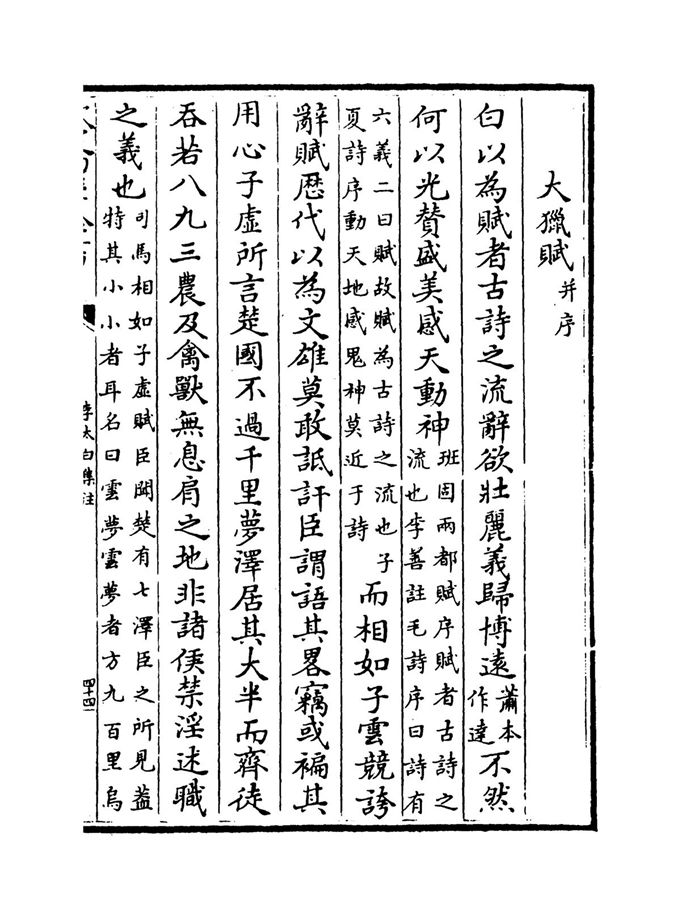 大獵賦并序
白以為賦者古詩之流辭欲壯麗義歸博遠蕭本作達不然
何以光賛盛美感天動神班固兩都賦序賦者古詩之流也李善註毛詩序曰詩有
六義二曰賦故賦為古詩之流也子夏詩序動天地感鬼神莫近于詩而相如子雲競誇
辭賦歴代以為文雄莫敢詆訐臣謂語其畧竊或褊其
用心子虛所言楚國不過千里夢澤居其大半而齊徒
吞若八九三農及禽獸無息肩之地非諸侯禁淫述職
之義也司馬相如子虛賦臣聞楚有七澤臣之所見葢特其小小者耳名曰雲夢雲夢者方九百里烏
李太白集注
四十四